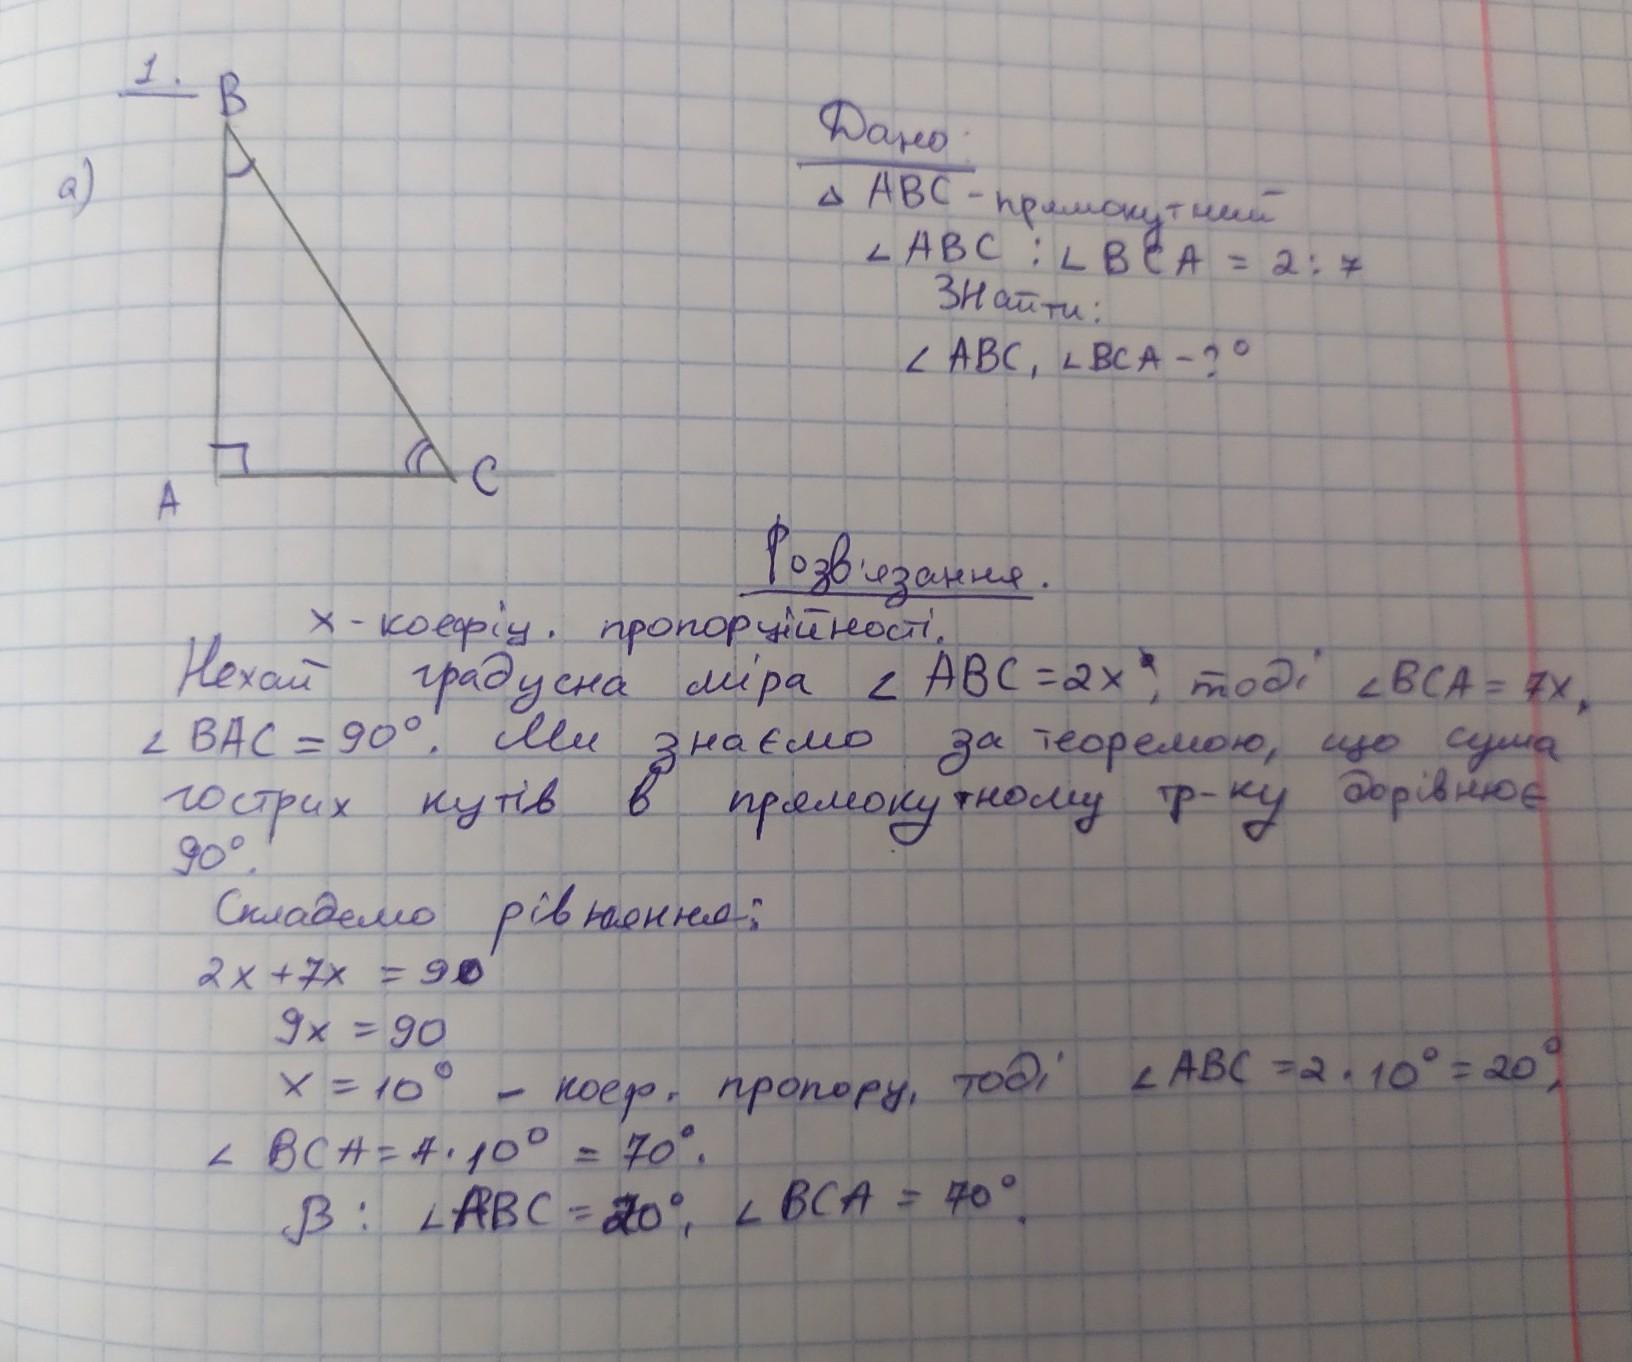 1.
B
а)
A
C
Дано:
△ ABC - прямокутний
∠ ABC : ∠ BCA = 2 : 7
Знайти:
∠ ABC, ∠ BCA - ?°
Розв'язання.
x - коефіц. пропорційності.
Нехай градусна міра ∠ ABC = 2x, тоді ∠ BCA = 7x,
∠ BAC = 90°. Ми знаємо за теоремою, що сума
гострих кутів в прямокутному тр-ку дорівнює
90°.
Складемо рівняння:
2x + 7x = 90
9x = 90
x = 10° - коеф. пропорц, тоді ∠ ABC = 2 · 10° = 20°,
∠ BCA = 7 · 10° = 70°.
В : ∠ ABC = 20°, ∠ BCA = 70°.